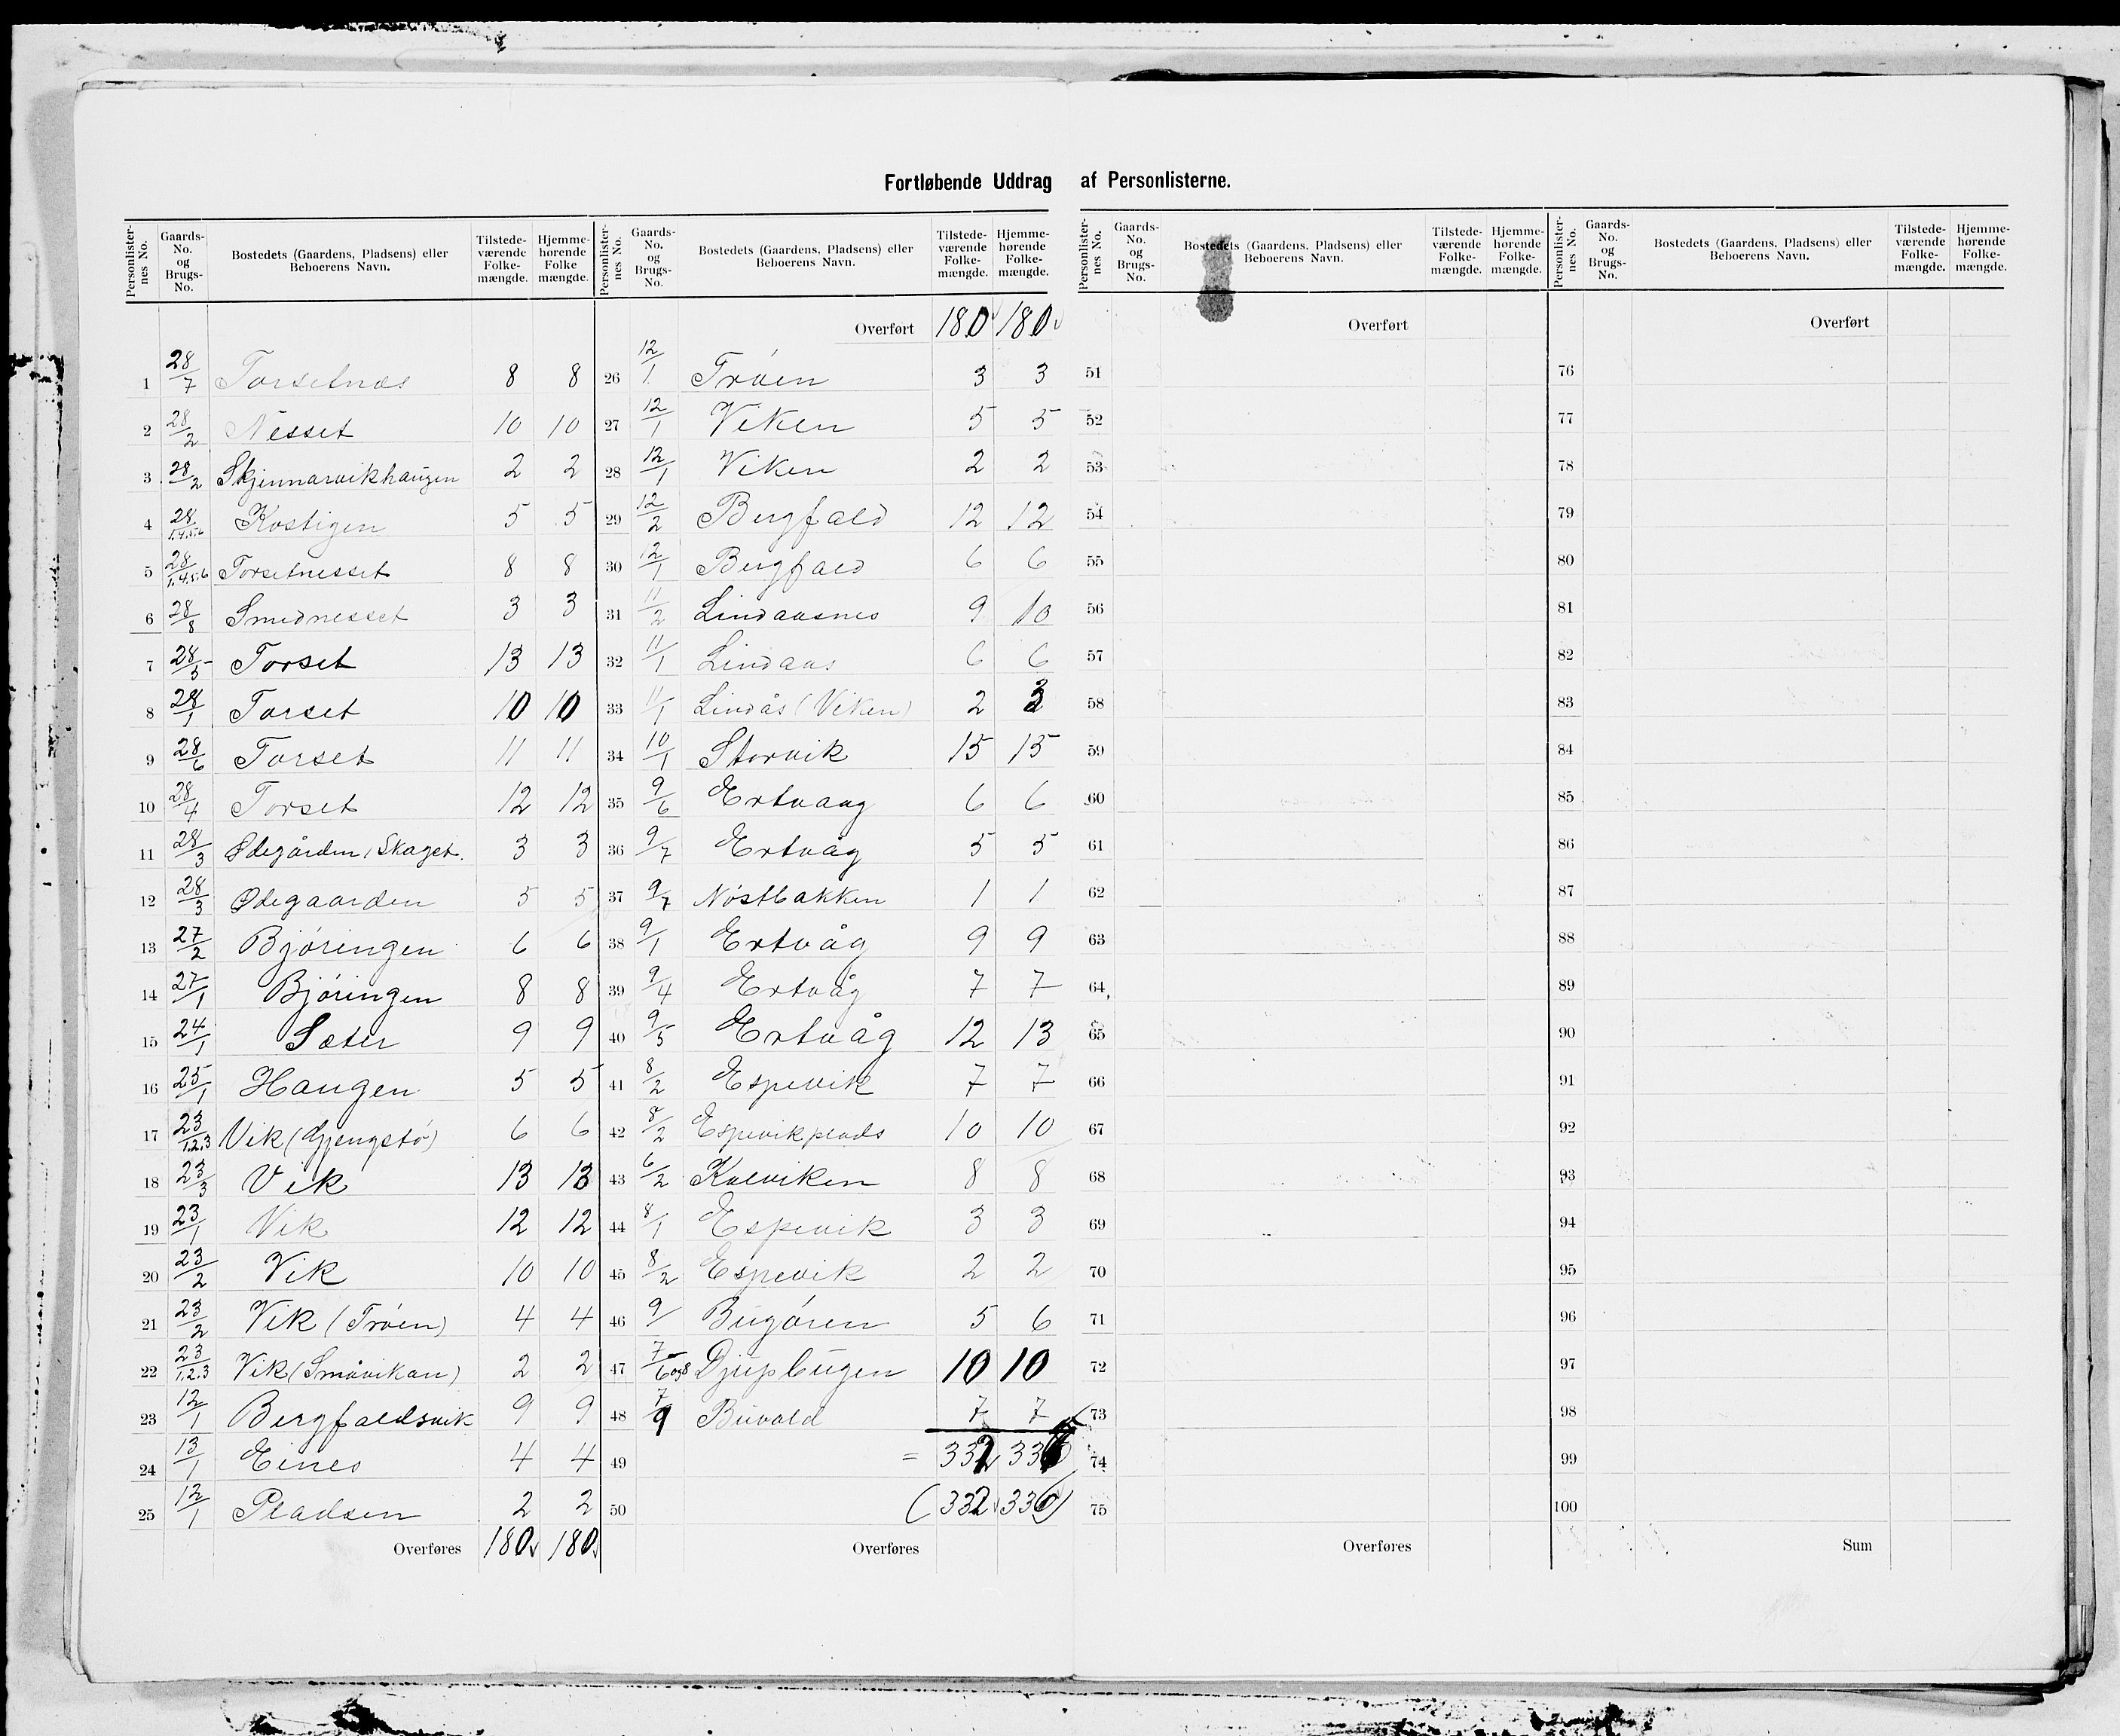 Fortløbende Uddrag af Personlisterne.
Personlister- nes No. | Gaards- No. og Brugs- No. | Bostedets (Gaardens, Pladsens) eller Beboerens Navn. | Tilstede- værende Folke- mængde. | Hjemme- hørende Folke mængde.
1 28/7 Torsetnæs 8 8
2 28/2 Nesset 10 10
3 28/2 Skjennarvikhaugen 2 2
4 28/1.4.5.6 Kostigen 5 5
5 28/1.4.5.6 Torsetnesset 8 8
6 28/8 Smednesset 3 3
7 28/5 Torset 13 13
8 28/1 Torset 10 10
9 28/6 Torset 11 11
10 28/4 Torset 12 12
11 28/3 Ødegården, Skaget. 3 3
12 28/3 Ødegaarden 5 5
13 27/2 Bjøringen 6 6
14 27/1 Bjøringen 8 8
15 24/1 Sæter 9 9
16 25/1 Haugen 5 5
17 23/1.2.3 Vik (Gjengstø) 6 6
18 23/3 Vik 13 13
19 23/1 Vik 12 12
20 23/2 Vik 10 10
21 23/2 Vik (Trøen) 4 4
22 23/1.2.3 Vik (Småvikan) 2 2
23 12/1 Bergfaldsvik 9 9
24 13/1 Eines 4 4
25 12/1 Pladsen 2 2
Overføres 180 180
Personlister- nes No. | Gaards- No. og Brugs- No. | Bostedets (Gaardens, Pladsens) eller Beboerens Navn. | Tilstede- værende Folke- mængde. | Hjemme- hørende Folke- mængde.
Overført 180 180
26 12/1 Trøen 3 3
27 12/1 Viken 5 5
28 12/1 Viken 2 2
29 12/2 Bergfald 12 12
30 12/1 Bergfald 6 6
31 11/2 Lindaasnes 9 10
32 11/1 Lindaas 6 6
33 11/1 Lindås (Viken) 2 3
34 10/1 Storvik 15 15
35 9/6 Ertvaag 6 6
36 9/7 Ertvåg 5 5
37 9/7 Nøstbakken 1 1
38 9/1 Ertvåg 9 9
39 9/4 Ertvåg 7 7
40 9/5 Ertvåg 12 13
41 8/2 Espevik 7 7
42 8/2 Espevikplads 10 10
43 6/2 Kalviken 8 8
44 8/1 Espevik 3 3
45 8/2 Espevik 2 2
46 9/ Bugøren 5 6
47 7/6og8 Djupbugen 10 10
48 7/9 Buvald 7 7
49 = 332 336
50 (332 336)
Overføres
Personlister- nes No. | Gaards- No. og Brugs- No. | Bostedets (Gaardens, Pladsens) eller Beboerens Navn. | Tilstede- værende Folke- mængde. | Hjemme- hørende Folke- mængde.
Overført
51
52
53
54
55
56
57
58
59
60
61
62
63
64
65
66
67
68
69
70
71
72
73
74
75
Overføres
Personlister- nes No. | Gaards- No. og Brugs- No. | Bostedets (Gaardens, Pladsens) eller Beboerens Navn. | Tilstede- værende Folke- mængde. | Hjemme- hørende Folke- mængde.
Overført
76
77
78
79
80
81
82
83
84
85
86
87
88
89
90
91
92
93
94
95
96
97
98
99
100
Sum